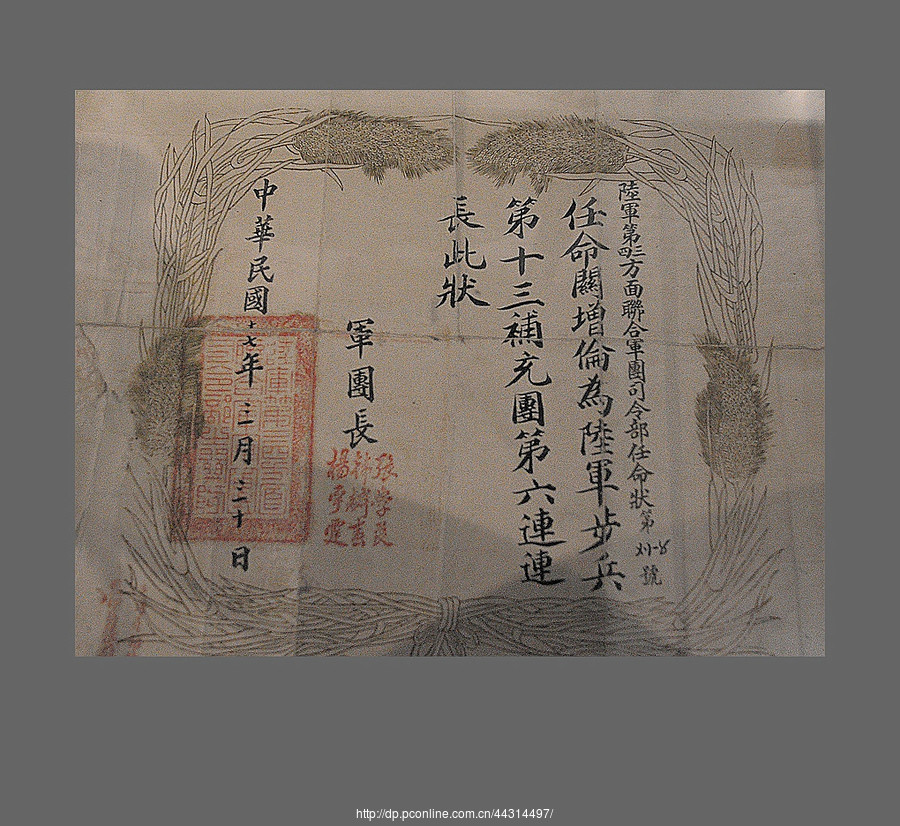 陸軍第三四方面聯合軍團司令部任命狀第
號
任命關增倫為陸軍步兵
第十三補充團第六連連
長此狀
軍團長
張學良
韓麟春
楊宇霆
中華民國十七年三月三十日
http://dp.pconline.com.cn/44314497/